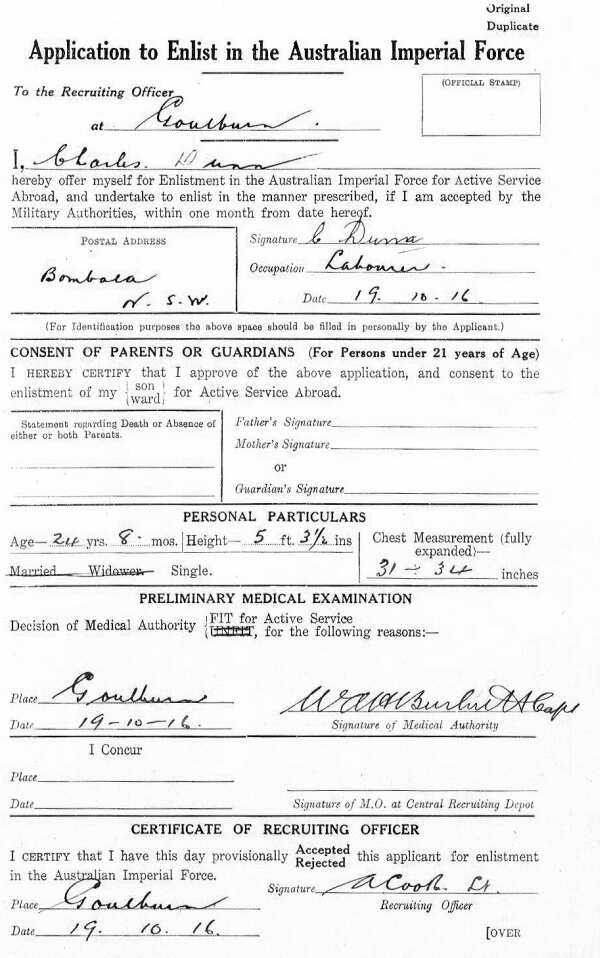 Original
Duplicate
Application to Enlist in the Australian Imperial Force
(OFFICIAL STAMP)
To the Recruiting Officer
at Goulburn.
I, Charles Dunn
hereby offer myself for Enlistment in the Australian Imperial Force for Active Service
Abroad, and undertake to enlist in the manner prescribed, if I am accepted by the
Military Authorities, within one month from date hereof.
POSTAL ADDRESS
Bombala
N. S. W.
Signature C Dunn
Occupation Labourer.
Date 19. 10. 16
(For Identification purposes the above space should be filled in personally by the Applicant.)
CONSENT OF PARENTS OR GUARDIANS (For Persons under 21 years of Age)
I HEREBY CERTIFY that I approve of the above application, and consent to the
enlistment of my {son / ward} for Active Service Abroad.
Statement regarding Death or Absence of
either or both Parents.
Father's Signature
Mother's Signature
or
Guardian's Signature
PERSONAL PARTICULARS
Age— 24 yrs. 8 mos. Height— 5 ft. 3½ ins
Chest Measurement (fully
expanded)—
31 ÷ 34 inches
Married Widower Single.
PRELIMINARY MEDICAL EXAMINATION
Decision of Medical Authority {FIT for Active Service
{UNFIT, for the following reasons:—
Place Goulburn
Date 19-10-16.
Capt
Signature of Medical Authority
I Concur
Place
Date
Signature of M.O. at Central Recruiting Depot
CERTIFICATE OF RECRUITING OFFICER
I CERTIFY that I have this day provisionally Accepted / Rejected this applicant for enlistment
in the Australian Imperial Force.
Signature A Cook Lt.
Place Goulburn
Recruiting Officer
Date 19. 10. 16.
[OVER